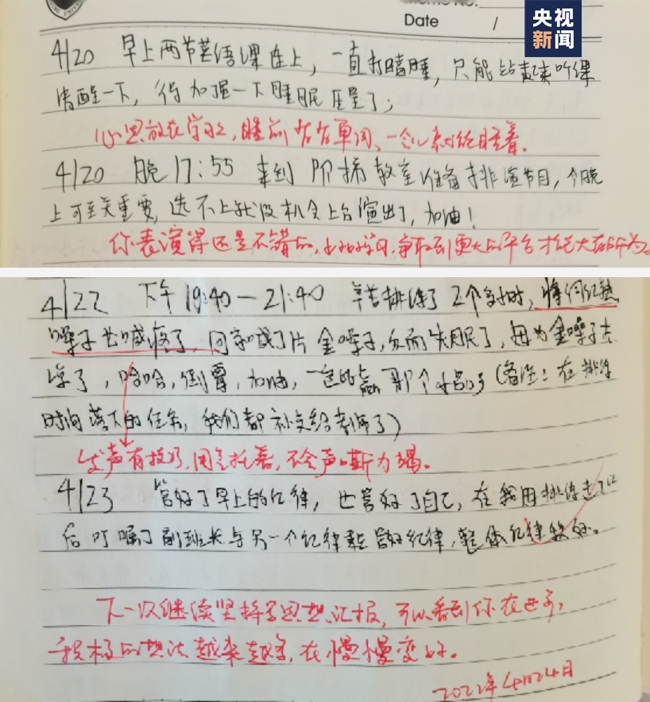 Date /
央视
新闻
4/20 早上两节英语课连上，一直打瞌睡，只能站起来听课
清醒一下，得加强一下睡眠质量了；
心思放在学习上，睡前背背单词，一会儿就能睡着。
4/20 晚17:55 来到阶梯教室准备排演节目，今晚
上可至关重要，选不上就没机会上台演出了，加油！
你表演得还是不错的，也好好学习，争取到更大的平台才能大有所为。
4/22 下午19:40—21:40 辛苦排练了2个多小时，
嗓子也喊疼了，同学给了片金嗓子，反而失眠了，因为金嗓子太
凉了，哈哈，倒霉，加油，一定能赢那个小品的（备注：在排练
时间落下的任务，我们都补交给老师了）
发声有技巧，用气托着，不会声嘶力竭。
4/23 管好了早上的纪律，也管好了自己，在我因排练走了以
后叮嘱了副班长与另一个纪律委员管好纪律，整体纪律较好。
下一次继续坚持写思想汇报，可以看到你在进步，
积极的想法越来越多，在慢慢变好。
2022年4月24日